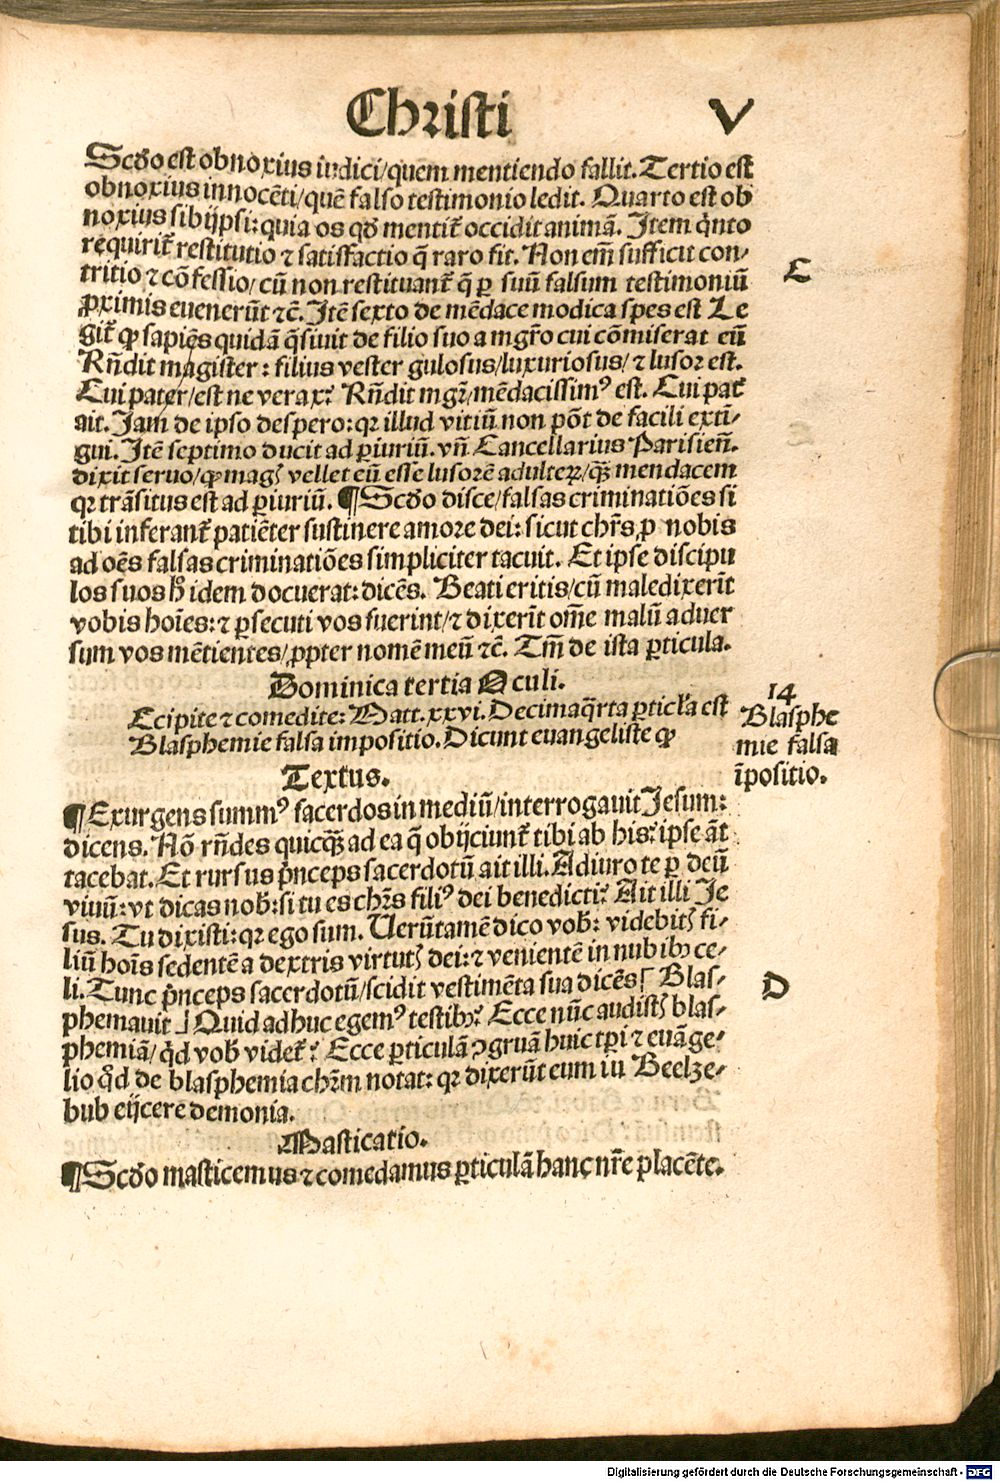 Christi
V
Scḋo est obnoxius iudici/quem mentiendo fallit. Tertio est
obnoxius innocẽti/quẽ falso testimonio ledit. Quarto est ob
noxius sibiipsi: quia os qḋ mentit᷑ occidit animã. Item q̇nto
requirit᷑ restitutio ⁊ satisfactio q̃ raro fit. Non em̃ sufficit con-
tritio ⁊ cõfessio/cũ non restituant᷑ q̃ ꝑ suũ falsum testimoniũ
ꝓximis euenerũt ⁊c̃. Itẽ sexto de mẽdace modica spes est Le
git᷑ ꝙ sapiẽs quidã q̃siuit de filio suo a mgr̃o cui cõmiserat eũ
Rñdit magister: filius vester gulosus/luxuriosus/⁊ lusor est.
Cui pater/est ne verax? Rñdit mgr̃/mẽdacissimꝰ est. Cui pat᷑
ait. Iam de ipso despero: qꝛ illud vitiũ non põt de facili extĩ-
gui. Itẽ septimo ducit ad ꝑiuriũ. vñ Cancellarius Parisieñ.
dixit seruo/ꝙ magꝭ vellet eũ esse lusorẽ adulteꝝ/qᷓꝫ mendacem
qꝛ trãsitus est ad ꝑiuriũ. ¶Scḋo disce/falsas criminatiões si
tibi inferant᷑ patiẽter sustinere amore dei: sicut chr̃s ꝓ nobis
ad oẽs falsas criminatiões simpliciter tacuit. Et ipse discipu
los suos h̉ idem docuerat: dicẽs. Beati eritis/cũ maledixerĩt
vobis hoĩes: ⁊ ꝑsecuti vos fuerint/⁊ dixerĩt om̃e malũ aduer
sum vos mẽtientes/ꝓpter nomẽ meũ ⁊c̃. Tm̃ de ista ꝑticula.
C
Dominica tertia Oculi.
Ccipite ⁊ comedite: Matt. xxvi. Decimaq̃rta ꝑticl̃a est
Blasphemie falsa impositio. Dicunt euangeliste ꝙ
14
Blasphe
mie falsa
ĩpositio.
Textus.
¶Exurgens summꝰ sacerdos in mediũ/interrogauit Iesum:
dicens. Nõ rñdes quicqᷓꝫ ad ea q̃ obijciunt᷑ tibi ab his? ipse ãt
tacebat. Et rursus p̃nceps sacerdotũ ait illi. Adiuro te ꝑ deũ
viuũ: vt dicas nob̉: si tu es chr̃s filiꝰ dei benedicti? Ait illi Ie
sus. Tu dixisti: qꝛ ego sum. Uerũtamẽ dico vob̉: videbitꝭ fi-
liũ hoĩs sedentẽ a dextris virtutꝭ dei: ⁊ venientẽ in nubibꝫ ce-
li. Tunc p̃nceps sacerdotũ/scidit vestimẽta sua dicẽs ⌈ Blas-
phemauit ⌋ Quid adhuc egemꝰ testibꝫ? Ecce nũc audistꝭ blas-
phemiã/q̇d vob̉ videt᷑? Ecce ꝑticulã ꝯgruã huic tp̃i ⁊ euãge-
lio q̊d de blasphemia chr̃m notat: qꝛ dixerũt eum iu Beelze-
bub eijcere demonia.
D
Masticatio.
¶Scḋo masticemus ⁊ comedamus ꝑticulã hanc nr̃e placẽte.
Digitalisierung gefördert durch die Deutsche Forschungsgemeinschaft - DFG